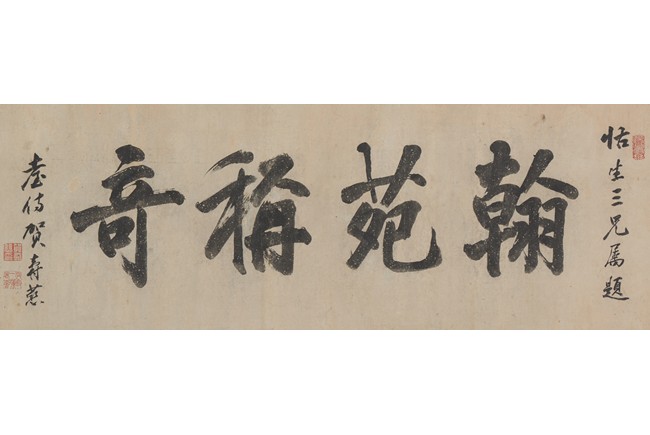 怡生三兄屬題
翰苑稱奇
賀壽慈